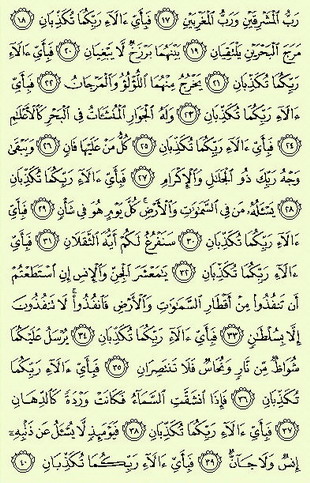 رَبُّ ٱلْمَشْرِقَيْنِ وَرَبُّ ٱلْمَغْرِبَيْنِ ١٧ فَبِأَىِّ ءَالَآءِ رَبِّكُمَا تُكَذِّبَانِ ١٨
مَرَجَ ٱلْبَحْرَيْنِ يَلْتَقِيَانِ ١٩ بَيْنَهُمَا بَرْزَخٌ لَّا يَبْغِيَانِ ٢٠ فَبِأَىِّ ءَالَآءِ
رَبِّكُمَا تُكَذِّبَانِ ٢١ يَخْرُجُ مِنْهُمَا ٱللُّؤْلُؤُ وَٱلْمَرْجَاتُ ٢٢ فَبِأَىِّ
ءَالَآءِ رَبِّكُمَا تُكَذِّبَانِ ٢٣ وَلَهُ ٱلْجَوَارِ ٱلْمُنشَـَٔاتُ فِى ٱلْبَحْرِ كَٱلْأَعْلَـٰمِ
٢٤ فَبِأَىِّ ءَالَآءِ رَبِّكُمَا تُكَذِّبَانِ ٢٥ كُلُّ مَنْ عَلَيْهَا فَانٍ ٢٦ وَيَبْقَىٰ
وَجْهُ رَبِّكَ ذُو ٱلْجَلَـٰلِ وَٱلْإِكْرَامِ ٢٧ فَبِأَىِّ ءَالَآءِ رَبِّكُمَا تُكَذِّبَانِ
٢٨ يَسْـَٔلُهُۥ مَن فِى ٱلسَّمَـٰوَٰتِ وَٱلْأَرْضِ ۚ كُلَّ يَوْمٍ هُوَ فِى شَأْنٍ ٢٩ فَبِأَىِّ
ءَالَآءِ رَبِّكُمَا تُكَذِّبَانِ ٣٠ سَنَفْرُغُ لَكُمْ أَيُّهَ ٱلثَّقَلَانِ ٣١ فَبِأَىِّ
ءَالَآءِ رَبِّكُمَا تُكَذِّبَانِ ٣٢ يَـٰمَعْشَرَ ٱلْجِنِّ وَٱلْإِنسِ إِنِ ٱسْتَطَعْتُمْ
أَن تَنفُذُوا۟ مِنْ أَقْطَارِ ٱلسَّمَـٰوَٰتِ وَٱلْأَرْضِ فَٱنفُذُوا۟ ۚ لَا تَنفُذُونَ
إِلَّا بِسُلْطَـٰنٍ ٣٣ فَبِأَىِّ ءَالَآءِ رَبِّكُمَا تُكَذِّبَانِ ٣٤ يُرْسَلُ عَلَيْكُمَا
شُوَاظٌ مِّن نَّارٍ وَنُحَاسٌ فَلَا تَنتَصِرَانِ ٣٥ فَبِأَىِّ ءَالَآءِ رَبِّكُمَا
تُكَذِّبَانِ ٣٦ فَإِذَا ٱنشَقَّتِ ٱلسَّمَآءُ فَكَانَتْ وَرْدَةً كَٱلدِّهَانِ
٣٧ فَبِأَىِّ ءَالَآءِ رَبِّكُمَا تُكَذِّبَانِ ٣٨ فَيَوْمَئِذٍ لَّا يُسْـَٔلُ عَن ذَنۢبِهِۦٓ
إِنسٌ وَلَا جَآنٌّ ٣٩ فَبِأَىِّ ءَالَآءِ رَبِّكُمَا تُكَذِّبَانِ ٤٠